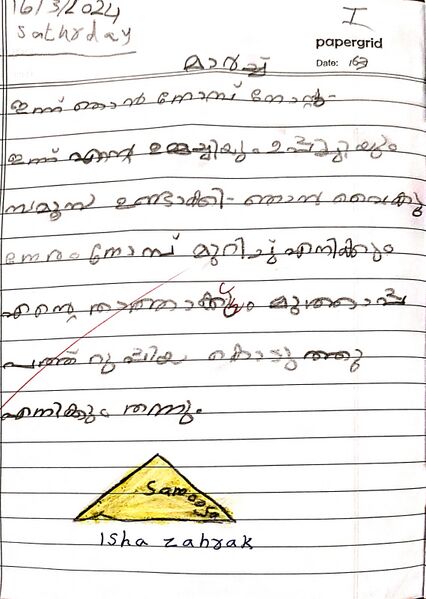 16/3/2024 I
sathrday
papergrid
മാർച്ച്
Date: 16/3
ഇന്ന് ഞാൻ നോമ്പ് നോറ്റു-
ഇന്ന് എന്റെ ഉമ്മച്ചിയും ഉപ്പച്ചിയും
സമൂസ ഉണ്ടാക്കി- ഞാൻ വൈകു
നേരം നോമ്പ് മുറിച്ചു എനിക്കും
എന്റെ താത്താക്കും മുത്താപ്പ
പത്ത് റുപ്പിയ കൊടുത്തു
എനിക്കും തന്നു.
Samoosa
Isha zahrak